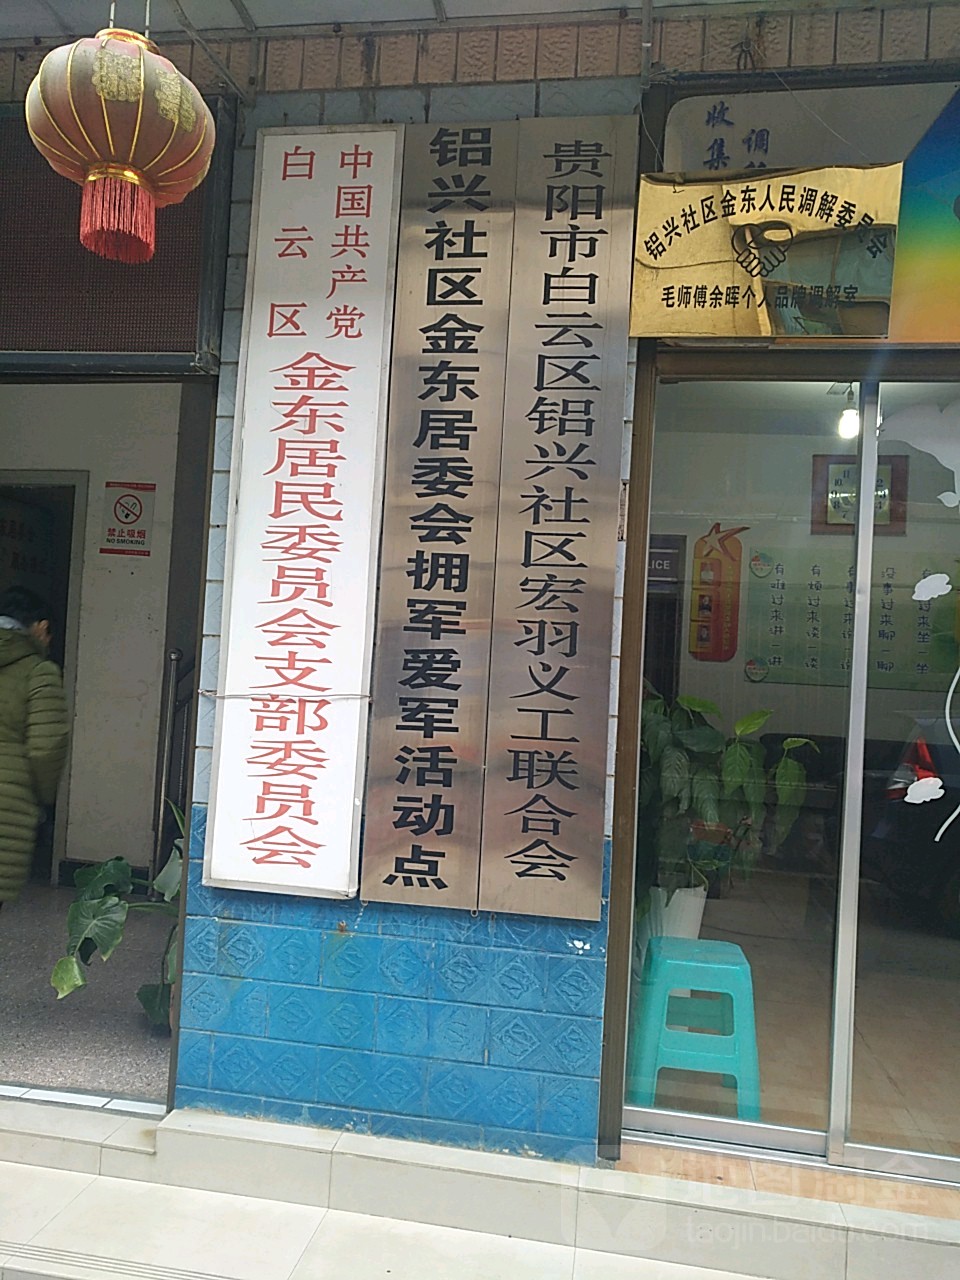 中国共产党
白云区
金东居民委员会支部委员会
铝兴社区金东居委会拥军爱军活动点
贵阳市白云区铝兴社区宏羽义工联合会
收集
调
铝兴社区金东人民调解委员会
毛师傅余晖个人品牌调解室
禁止吸烟
NO SMOKING
LICE
有难过来讲一讲
有烦过来谈一谈
有事过来说一说
没事过来聊一聊
有过来坐一坐
taojin.baidu.com